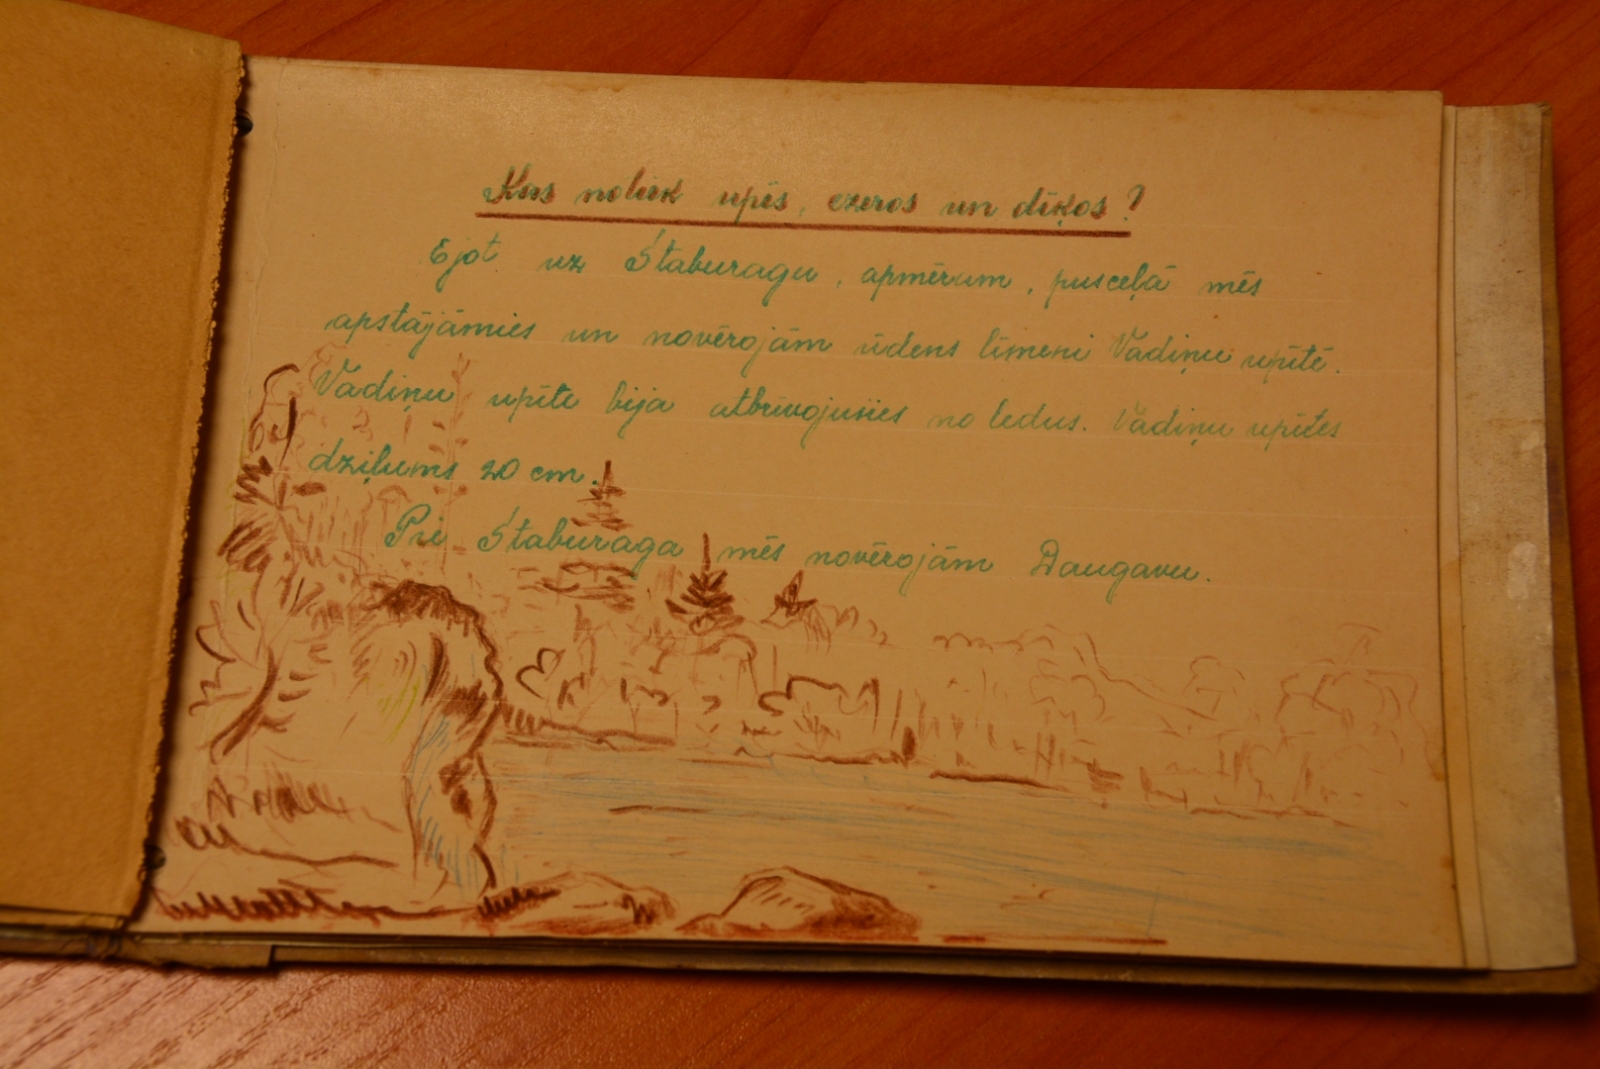 Kas notiek upēs, ezeros un dīķos?
Ejot uz Staburagu, apmēram, pusceļā mēs
apstājāmies un novērojām ūdens līmeni Vadiņu upītē.
Vadiņu upīte bija atbrīvojusies no ledus. Vadiņu upītes
dziļums 20 cm.
Pie Staburaga mēs novērojām Daugavu.